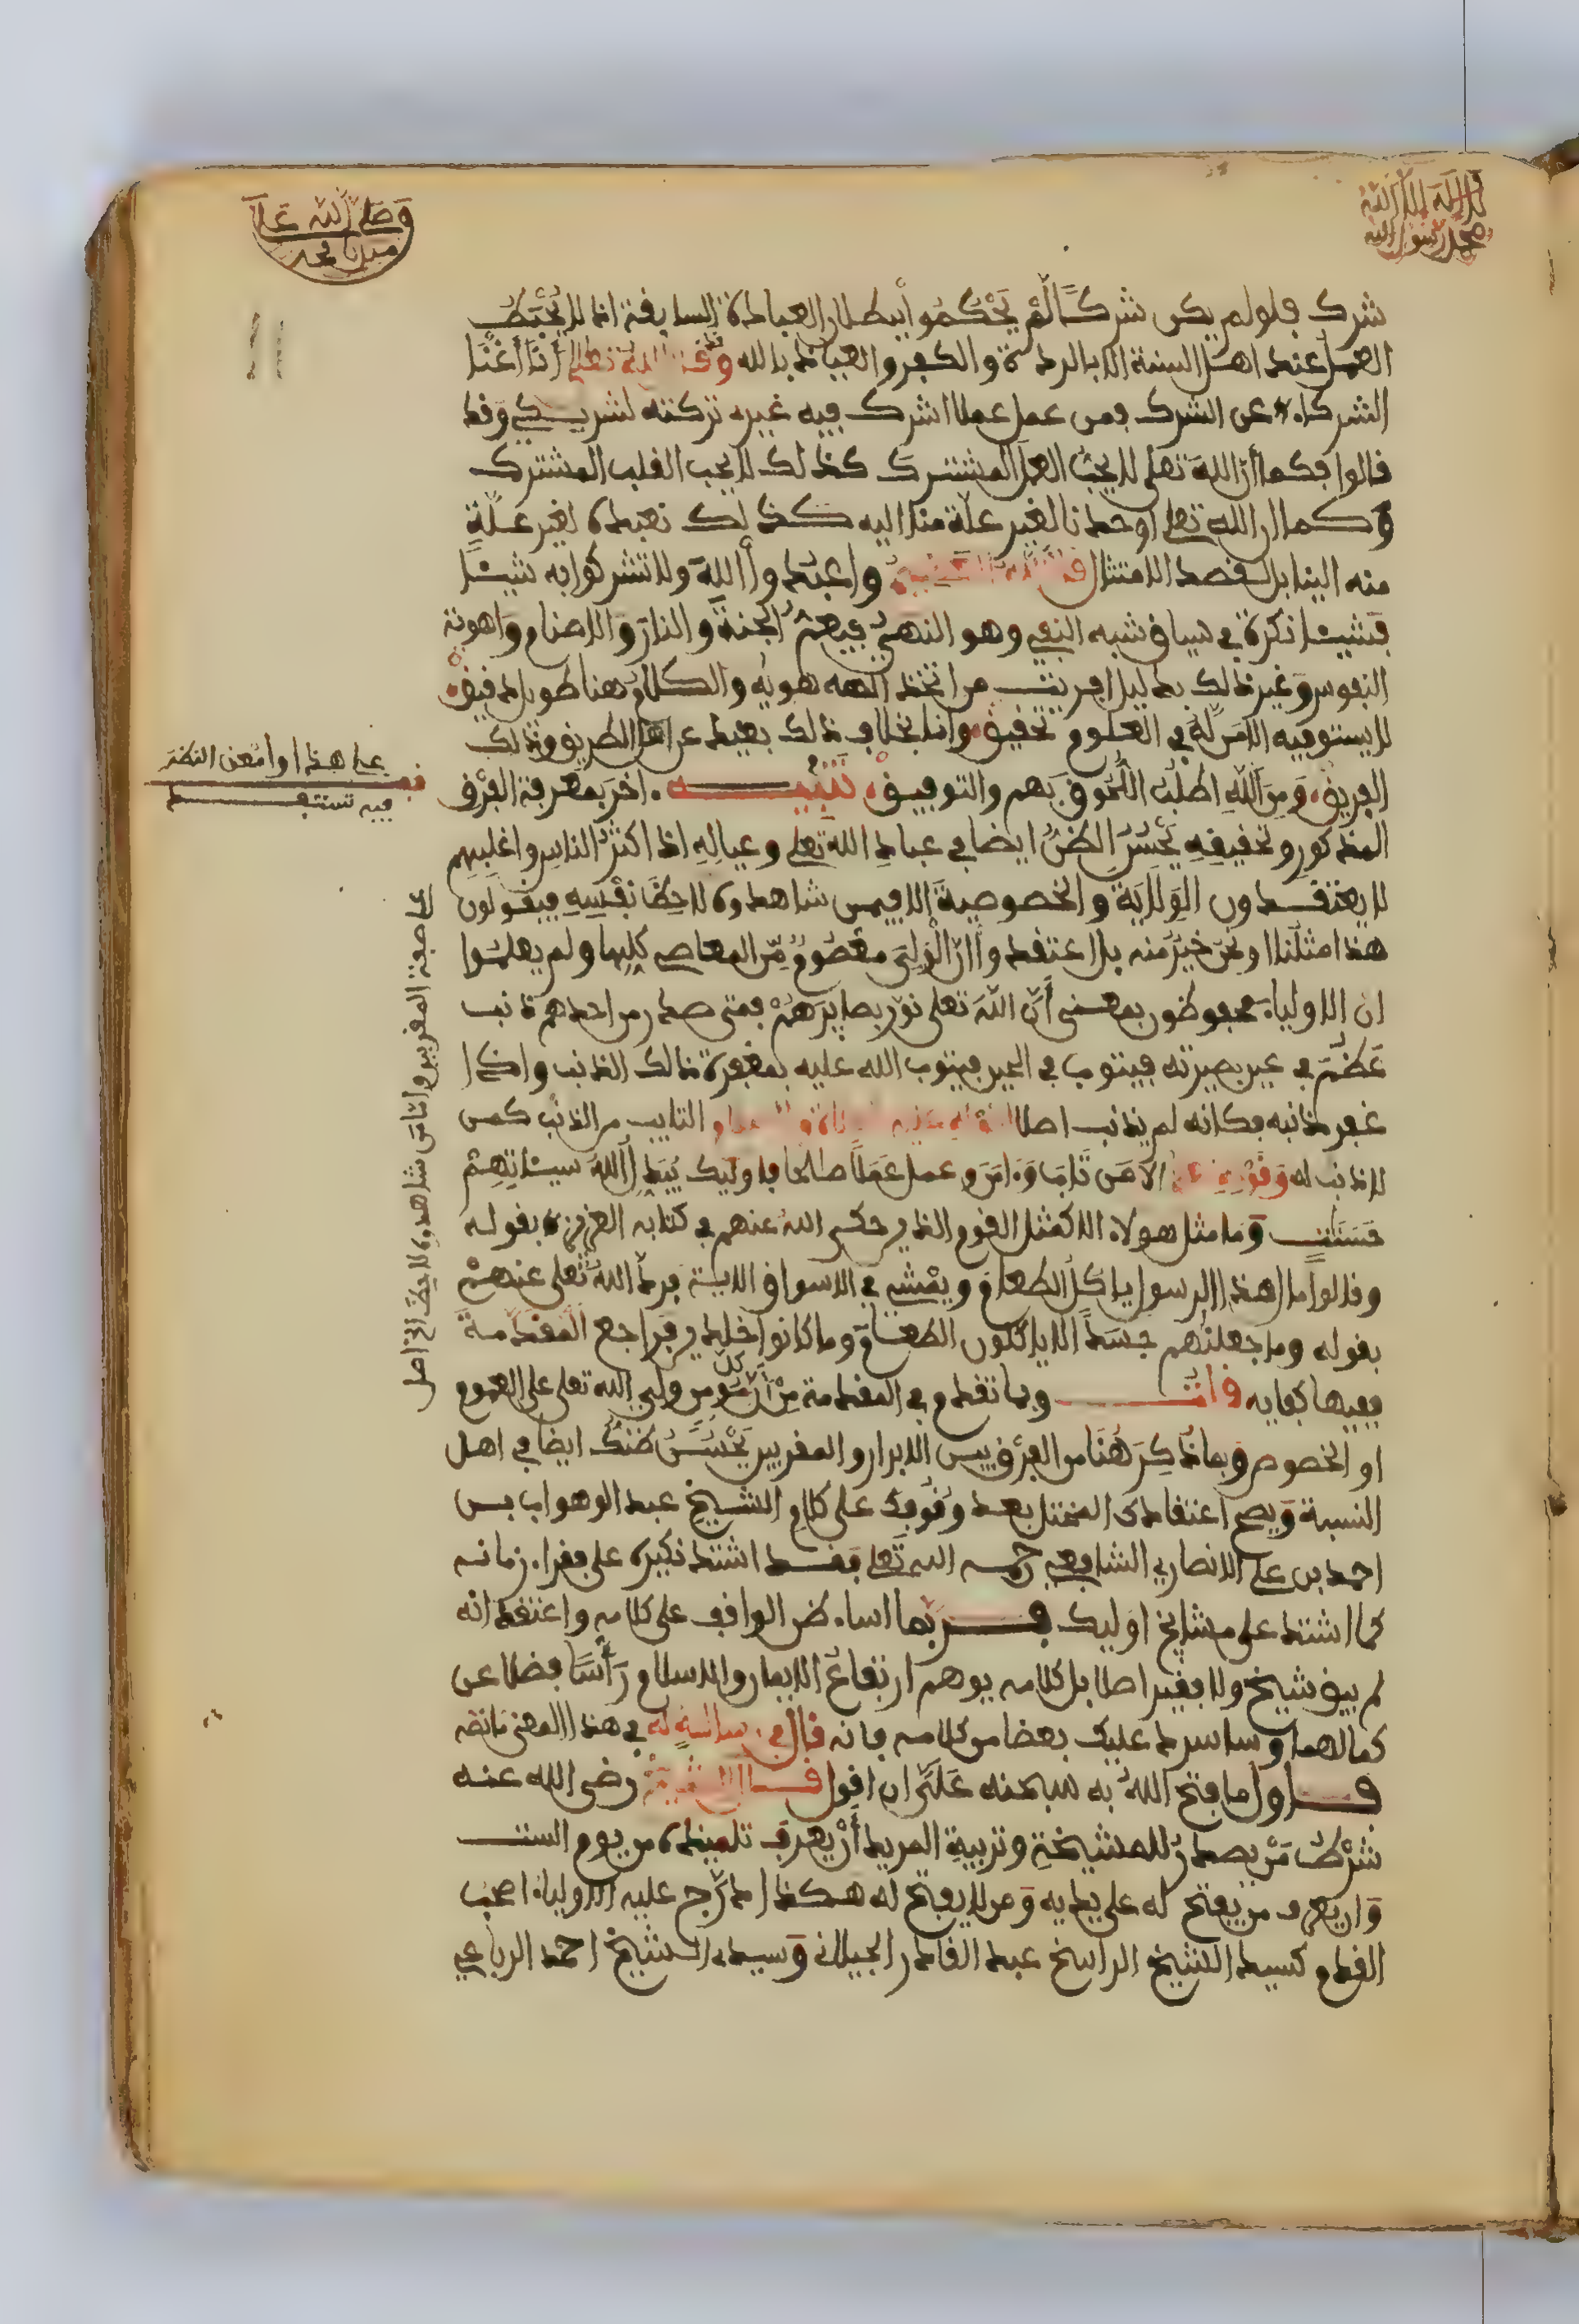 لا اله الا الله
محمد رسول الله
وصلى الله على
سيدنا محمد
شرك فلو لم يكن شركا لم يحكموا ببطلان العبادة السابقة اذ لا يحبط
العمل عند اهل السنة الا بالردة والكفر والعياذ بالله وقد قال الله تعلى انا اغنا
الشركاء عن الشرك فمن عمل عملا اشرك فيه غيره تركته لشريكي وقد
قالوا فكما ان الله تعلى لا يحب العمل المشترك كذلك لا يحب القلب المشترك
وكما ان الله تعلى اوجدنا لغير علة منا اليه كذلك نعبده لغير علة
منه الينا بل لقصد الامتثال واعبدوا الله ولا تشركوا به شيئا
فشيئا نكرة في سياق شبه النفي وهو النهي فيعم الجنة والنار والاصنام واهوية
النفوس وغير ذلك بدليل افريت من اتخذ الهه هويه والكلام هنا طويل دقيق
لا يستوفيه الا من له في العلوم تحقيق وانما بخلاف ذلك بعيد عن اهل الطريق وذلك
الفريق ومن الله اطلب اللحوق بهم والتوفيق تنبيه . اخر بمعرفة الفرق
المذكور وتحقيقه يحسن الظن ايضا في عباد الله تعلى وعياله اذ اكثر الناس واغلبهم
لا يعتقدون الولاية والخصوصية الا فيمن شاهدوه لاحظا نفسه فيقولون
هذا مثلنا ونحن خير منه بل اعتقدوا ان الولي معصوم من المعاصي كلها ولم يعلموا
ان الاولياء محفوظون بمعنى ان الله تعلى نور بصايرهم فمتى صدر من احدهم ذنب
عظم في عين بصيرته فيتوب في الحين فيتوب الله عليه بمغفرة ذلك الذنب واذا
غفر ذنبه فكانه لم يذنب اصلا لقوله عليه الصلاة والسلام التايب من الذنب كمن
لا ذنب له وقوله الا من تاب وءامن وعمل عملا صالحا فاوليك يبدل الله سيئاتهم
حسنات وما مثل هولاء الا كمثل القوم الذين حكى الله عنهم في كتابه العزيز بقوله
وقالوا مال هذا الرسول ياكل الطعام ويمشي في الاسواق الاية فرد الله تعلى عنهم
بقوله وما جعلنهم جسدا لا ياكلون الطعام وما كانوا خلدين فراجع المقدمة
ففيها كفايه وانت وبما تقدم في المقدمة من ان كل مومن ولي الله تعلى على العموم
او الخصوص وبما ذكر هنا من الفرق بين الابرار والمقربين يحسن ظنك ايضا في اهل
النسبة ويصح اعتقادك المختل بعد وقوفك على كلام الشيخ عبد الوهواب بن
احمد بن علي الانصاري الشافعي رحمه الله تعلى فقد اشتد نكيره على فقراء زمانه
كما اشتد على مشايخ اوليك فربما اساء ظن الواقف على كلامه واعتقد انه
لم يبق شيخ ولا فقير اصلا بل كلامه يوهم ارتفاع الايمان والاسلام راسا فضلا عن
كمالهما وساسرد عليك بعضا من كلامه فانه قال في رسالة له في هذا المعنى ما نصه
فاول ما فتح الله به سبحنه علي ان اقول رضي الله عنه
شرط من يصدر للمشيخة وتربية المريد ان يعرف تلميذه من يوم الست
وان يعرف من يفتح له على يديه ومن لا يفتح له هكذا درج عليه الاولياء اصحب
القدم كسيد الشيخ الراسخ عبد القادر الجيلاني وسيد الشيخ احمد الرفاعي
على هذا وامعن النظر
فيه تستفد
شاهدوه لاحظ الخ اصل